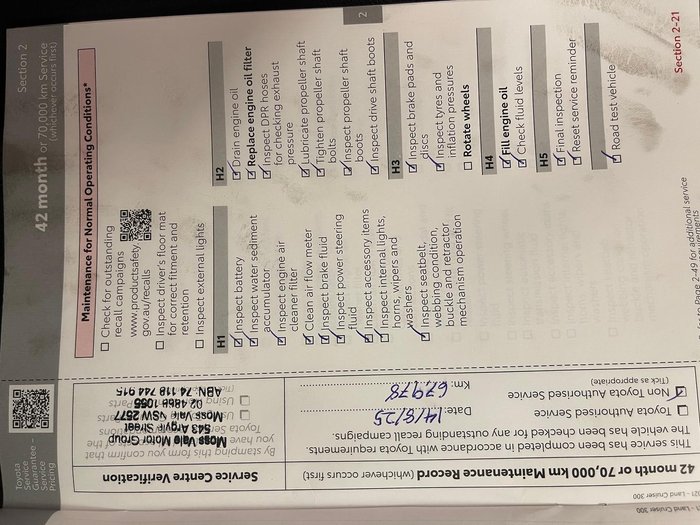 Section 2
42 month or 70 000 km Service
(whichever occurs first)
Maintenance for Normal Operating Conditions*
Check for outstanding
recall campaigns
www.productsafety.
gov.au/recalls
Inspect driver's floor mat
for correct fitment and
retention
Inspect external lights
H1
Inspect battery
Inspect water sediment
accumulator
Inspect engine air
cleaner filter
Clean air flow meter
Inspect brake fluid
Inspect power steering
fluid
Inspect accessory items
Inspect internal lights,
horns, wipers and
washers
Inspect seatbelt,
webbing condition,
buckle and retractor
mechanism operation
H2
Drain engine oil
Replace engine oil filter
Inspect DPR hoses
for checking exhaust
pressure
Lubricate propeller shaft
Tighten propeller shaft
bolts
Inspect propeller shaft
boots
Inspect drive shaft boots
H3
Inspect brake pads and
discs
Inspect tyres and
inflation pressures
Rotate wheels
H4
Fill engine oil
Check fluid levels
H5
Final inspection
Reset service reminder
Road test vehicle
2
page 2-49 for additional service
Section 2-21
Toyota
Service
Guarantee –
Service
Pricing
Service Centre Verification
By stamping this form you confirm that
you have
Moss Vale Motor Group
543 Argyle Street
Moss Vale NSW 2577
02 4868 1055
ABN: 74 118 744 915
42 month or 70,000 km Maintenance Record (whichever occurs first)
This service has been completed in accordance with Toyota requirements.
The vehicle has been checked for any outstanding recall campaigns.
Toyota Authorised Service
Date: 14/8/25
Non Toyota Authorised Service
Km: 67,978
(Tick as appropriate)
Land Cruiser 300
Land Cruiser 300